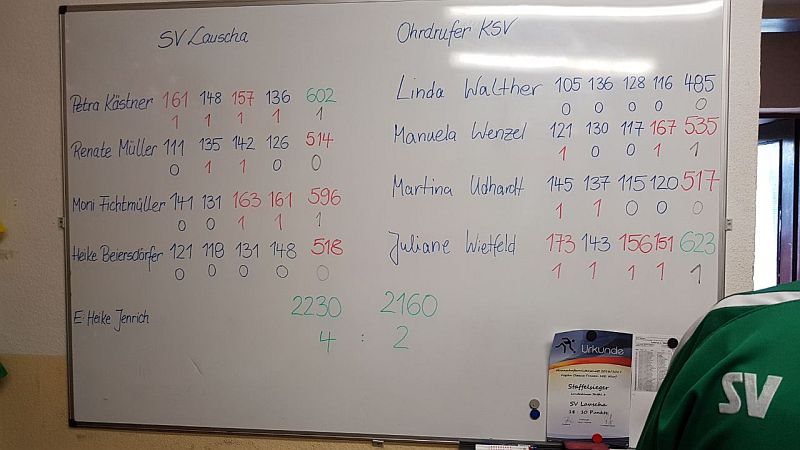 SV Lauscha
Ohrdrufer KSV
Petra Kästner 161 148 157 136 602
1 1 1 1 1
Renate Müller 111 135 142 126 514
0 1 1 0 0
Moni Fichtmüller 141 131 163 161 596
0 0 1 1 1
Heike Beiersdörfer 121 118 131 148 518
0 0 0 0 0
E: Heike Jenrich
Linda Walther 105 136 128 116 485
0 0 0 0 0
Manuela Wenzel 121 130 117 167 535
1 0 0 1 1
Martina Udhardt 145 137 115 120 517
1 1 0 0 0
Juliane Wietfeld 173 143 156 151 623
1 1 1 1 1
2230 2160
4 : 2
Urkunde
Staffelsieger
SV Lauscha
18 : 10 Punkte
SV